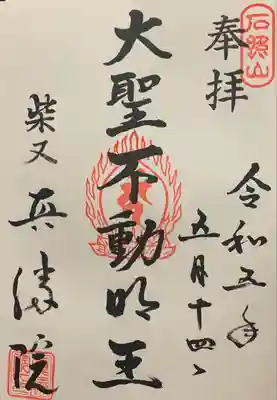 石照山
奉拝
令和五年
五月十四日
大聖不動明王
柴又
真勝院